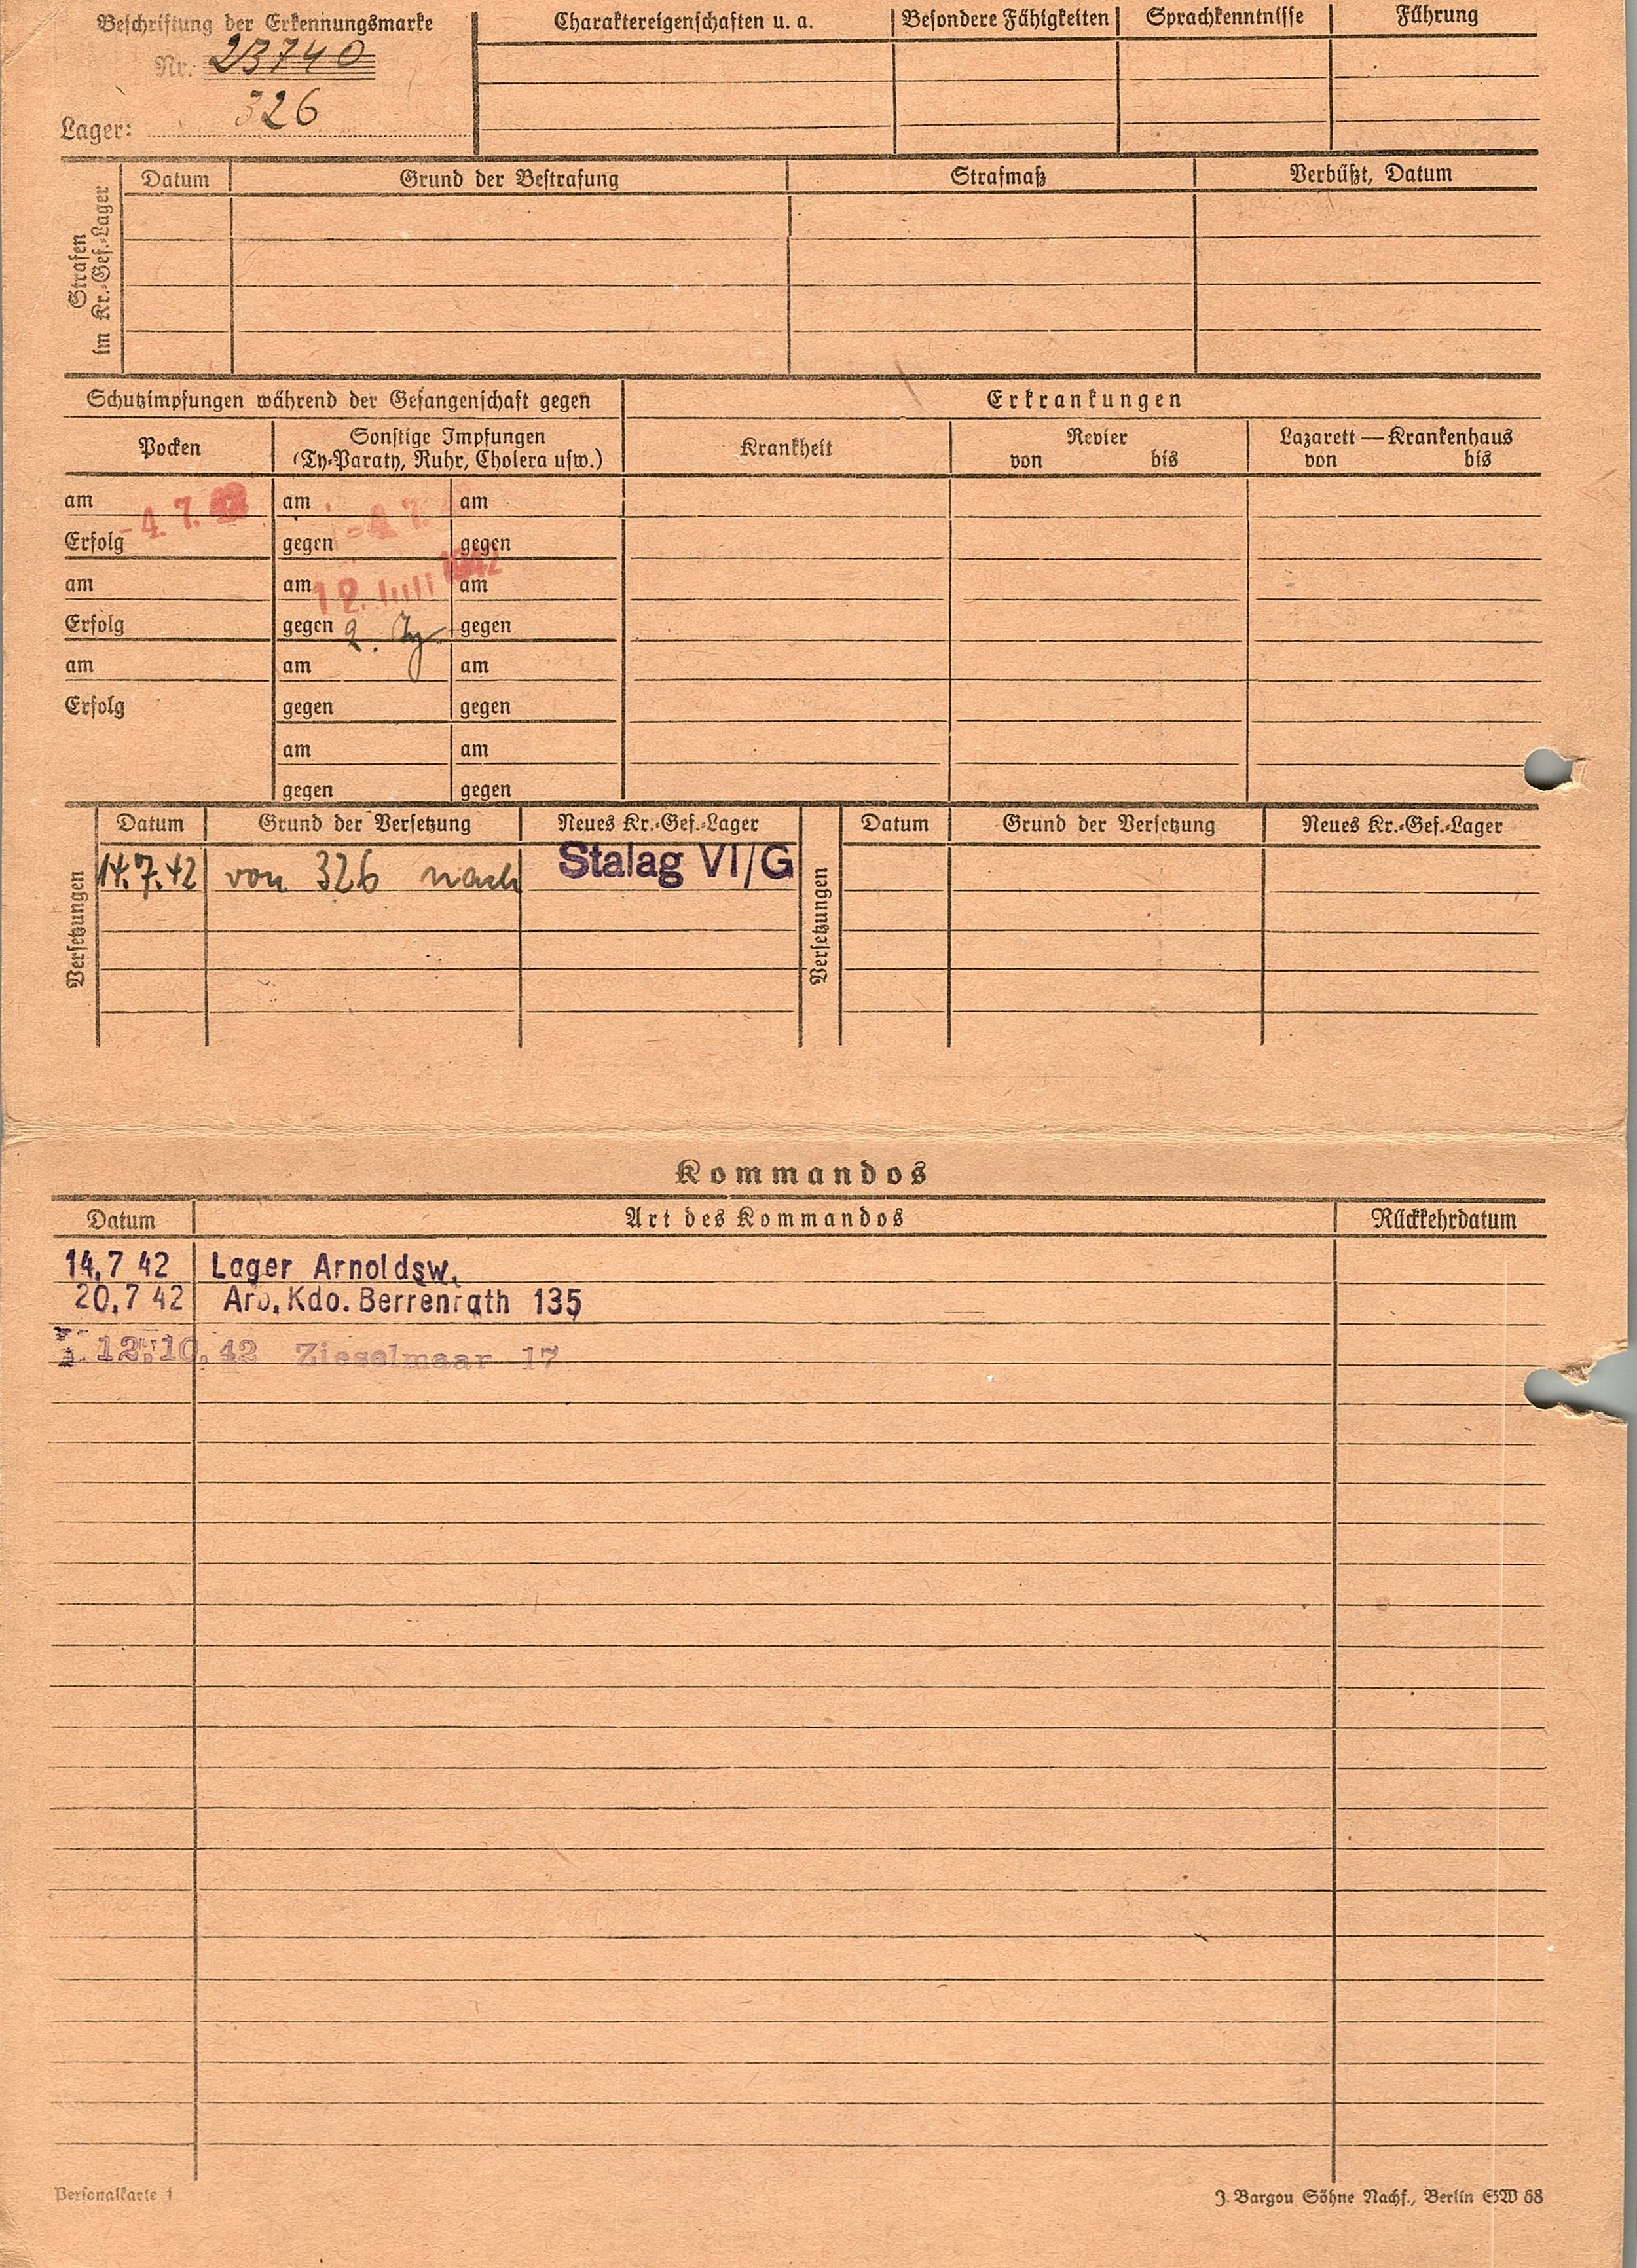 Beschriftung der Erkennungsmarke
Nr. 23740
Lager: 326
Charaktereigenschaften u. a. Besondere Fähigkeiten Sprachkenntnisse Führung
Strafen
im Kr.-Gef.-Lager
Datum Grund der Bestrafung Strafmaß Verbüßt, Datum
Schutzimpfungen während der Gefangenschaft gegen
Erkrankungen
Pocken
Sonstige Impfungen
(Ty-Paraty, Ruhr, Cholera usw.)
Krankheit
Revier
von bis
Lazarett — Krankenhaus
von bis
am -4. 7. am -4. 7. am
Erfolg gegen gegen
am am 12. Juli 1942 am
Erfolg gegen 2. Ty gegen
am am am
Erfolg gegen gegen
am am
gegen gegen
Versetzungen
Datum Grund der Versetzung Neues Kr.-Gef.-Lager
14.7.42 von 326 nach Stalag VI/G
Versetzungen
Datum Grund der Versetzung Neues Kr.-Gef.-Lager
Kommandos
Datum Art des Kommandos Rückkehrdatum
14.7 42 Lager Arnoldsw.
20.7 42 Arb. Kdo. Berrenrath 135
12.10.42 Zieselmaar 17
Personalkarte 1
J. Bargou Söhne Nachf., Berlin SW 68